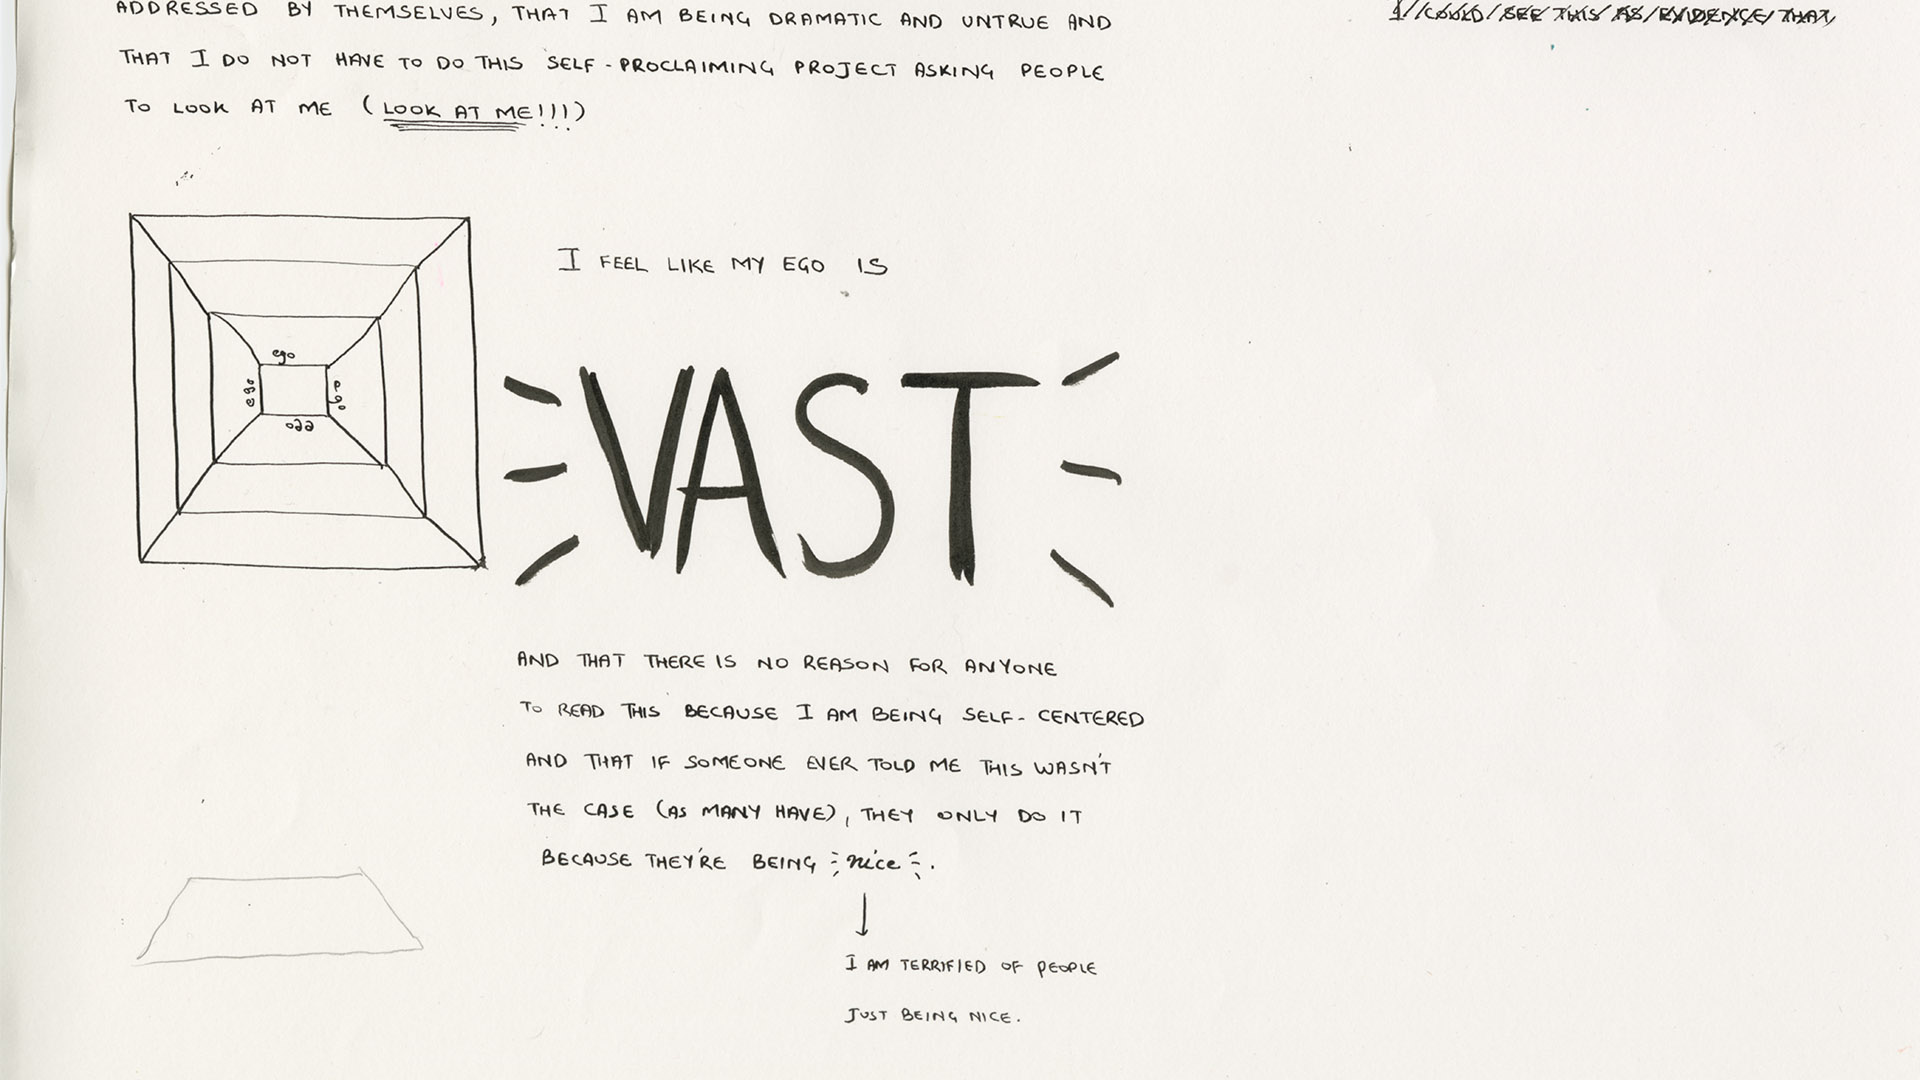 ADDRESSED BY THEMSELVES, THAT I AM BEING DRAMATIC AND UNTRUE AND
THAT I DO NOT HAVE TO DO THIS SELF-PROCLAIMING PROJECT ASKING PEOPLE
TO LOOK AT ME (LOOK AT ME!!!)
I COULD SEE THIS AS EVIDENCE THAT
I FEEL LIKE MY EGO IS
ego
ego
ego
ego
VAST
AND THAT THERE IS NO REASON FOR ANYONE
TO READ THIS BECAUSE I AM BEING SELF-CENTERED
AND THAT IF SOMEONE EVER TOLD ME THIS WASN'T
THE CASE (AS MANY HAVE), THEY ONLY DO IT
BECAUSE THEY'RE BEING nice.
I AM TERRIFIED OF PEOPLE
JUST BEING NICE.